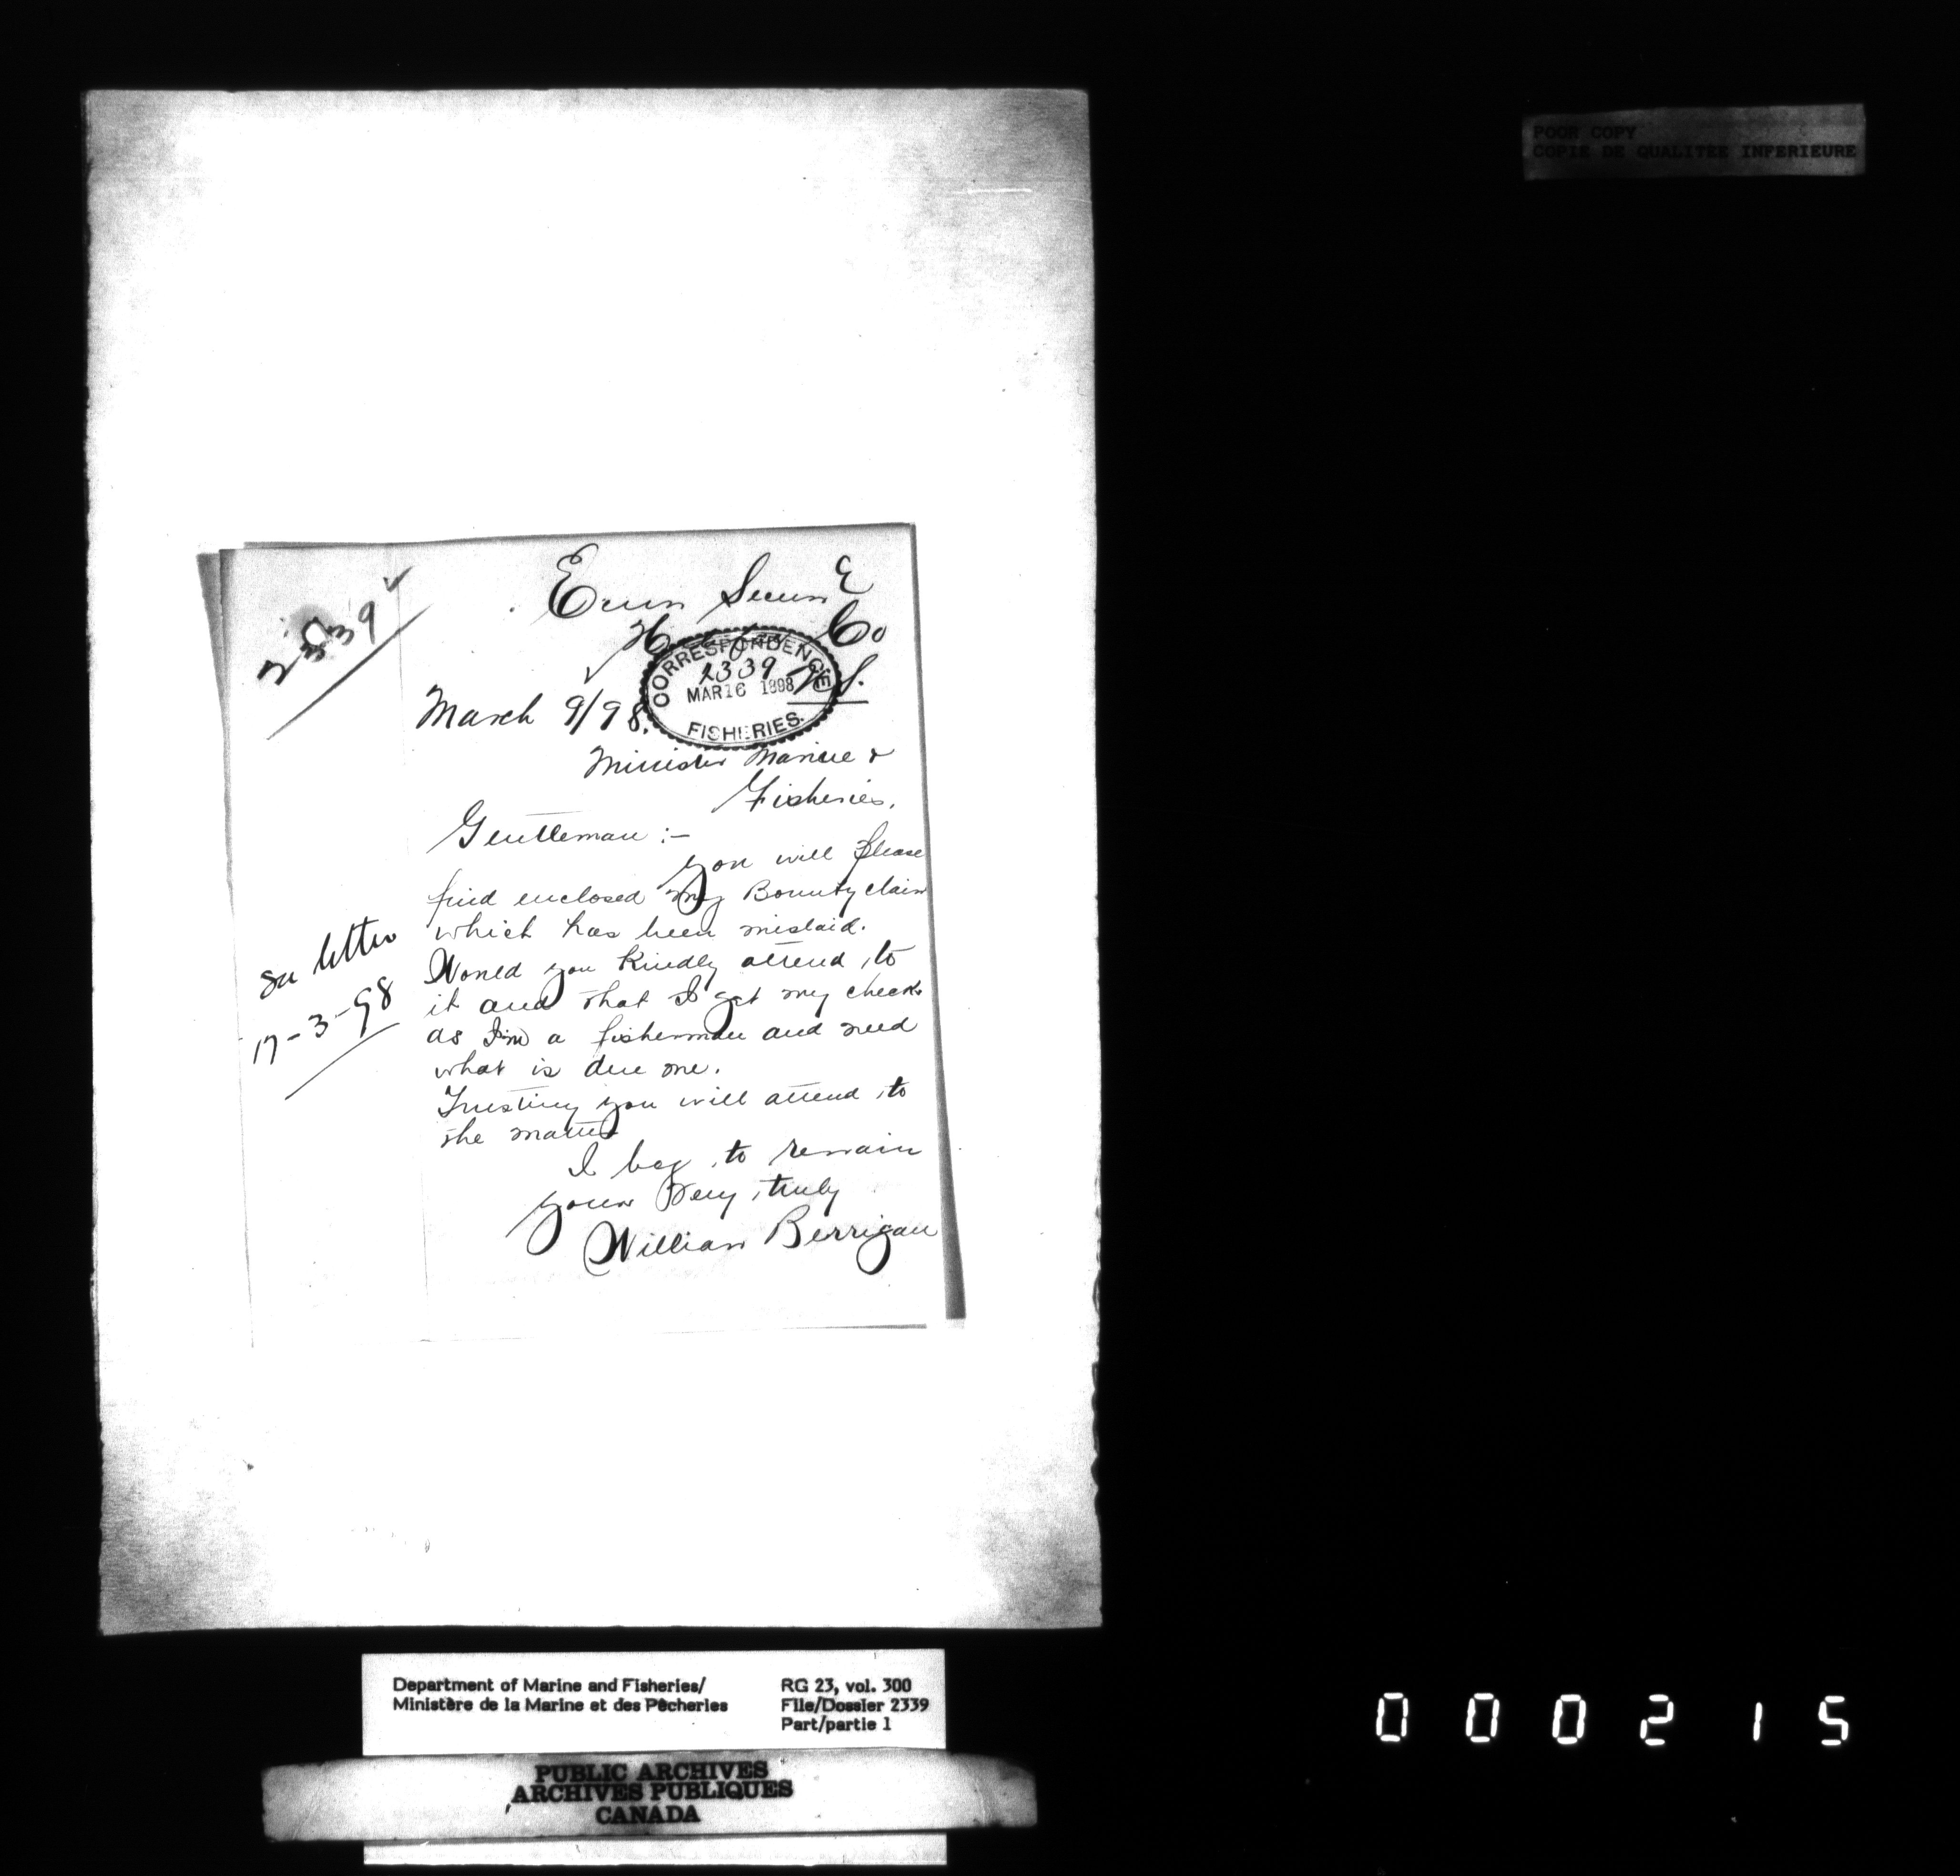 POOR COPY
COPIE DE QUALITEE INFERIEURE
2339
Ecum Secum E
Co
N.S.
CORRESPONDENCE
2339
MAR 16 1898
FISHERIES.
March 9/98.
Minister Marine &
Fisheries.
Gentleman :-
you will please
find enclosed my Bounty claim
which has been mislaid.
Would you kindly attend to
it and that I get my check
as I'm a fisherman and need
what is due me.
Trusting you will attend to
the matter
I beg to remain
yours Very truly
William Berrigan
letter
17-3-98
Department of Marine and Fisheries/
Ministère de la Marine et des Pêcheries
RG 23, vol. 300
File/Dossier 2339
Part/partie 1
PUBLIC ARCHIVES
ARCHIVES PUBLIQUES
CANADA
000215